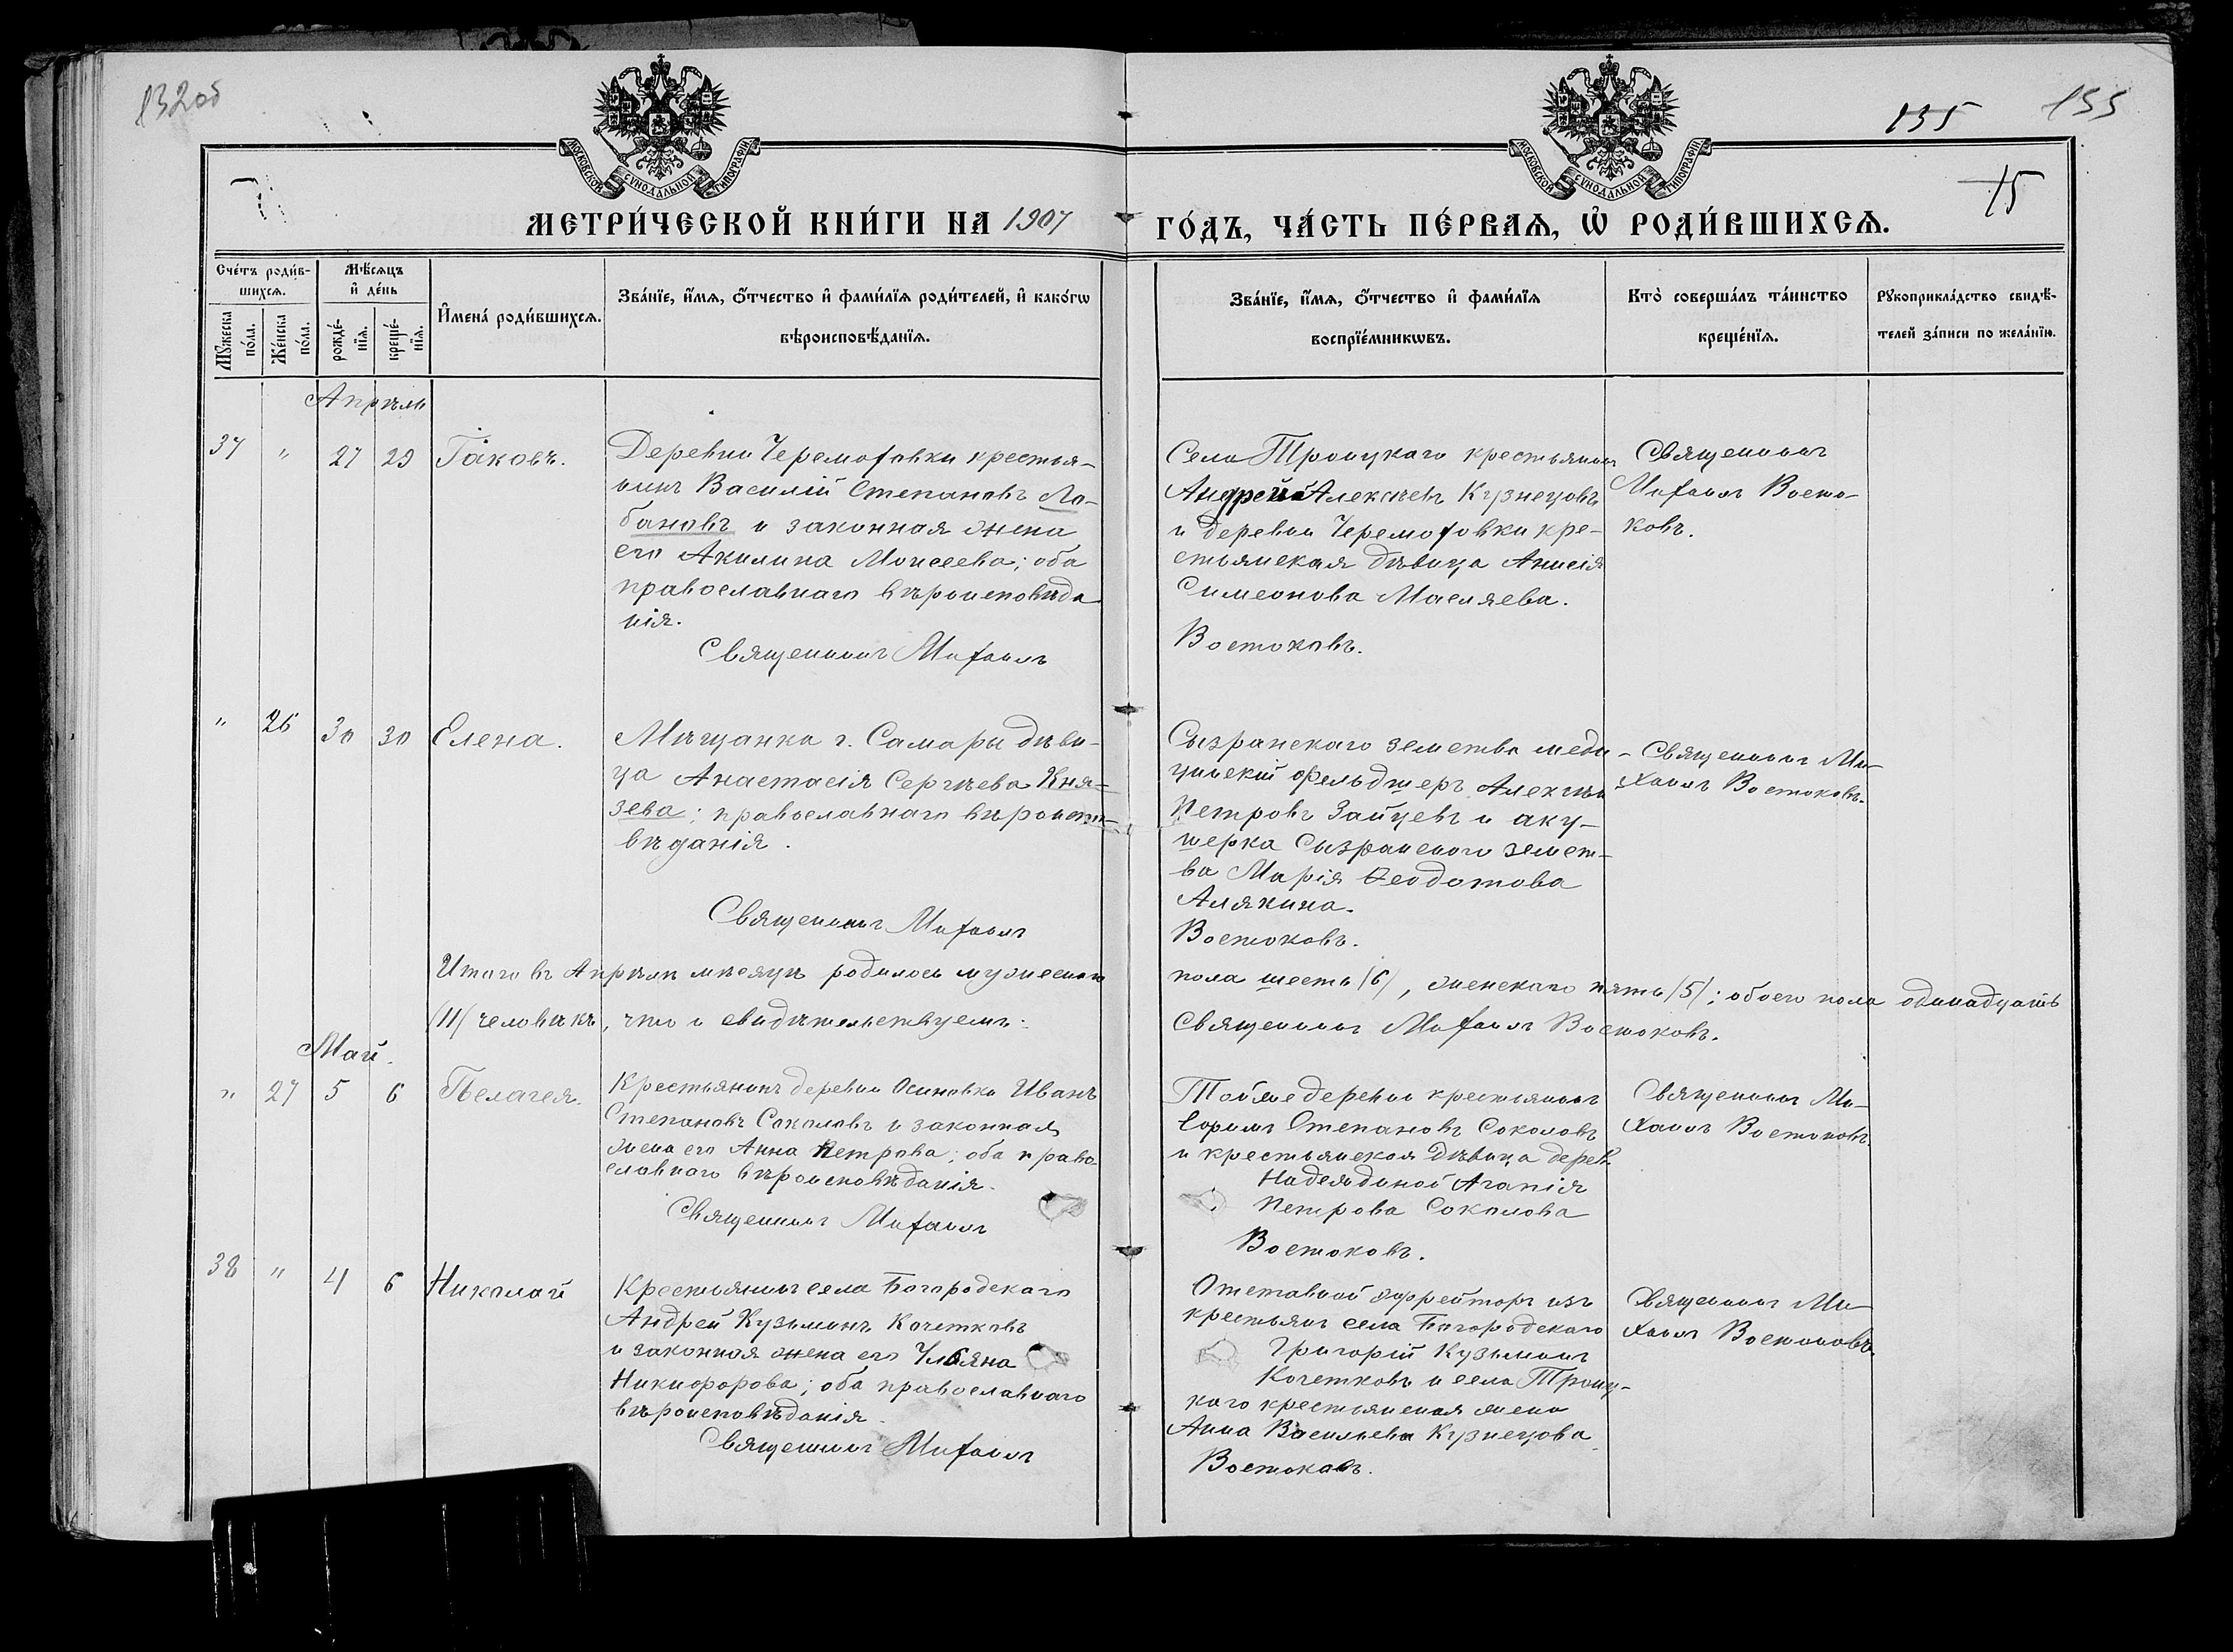 132об
135
155
15
МОСКОВСКОЙ СѴНОДАЛЬНОЙ ТИПОГРАФІИ
МОСКОВСКОЙ СѴНОДАЛЬНОЙ ТИПОГРАФІИ
МЕТРИ́ЧЕСКОЙ КНИ́ГИ НА 1907
ГО́ДЪ, ЧА́СТЬ ПЕ́РВАѦ, Ѡ҆ РОДИ́ВШИХСѦ.
Сче́тъ роди́в-
шихсѧ.
Мꙋжеска по́ла.
Же́нска по́ла.
Мѣ́сѧцъ
и҆ де́нь
рожде́-
нїѧ.
креще́-
нїѧ.
И҆мена́ роди́вшихсѧ.
Зва́нїе, и҆́мѧ, ѻ҆́тчество и҆ фами́лїѧ роди́телей, и҆ како́гѡ
вѣроисповѣ́данїѧ.
Зва́нїе, и҆́мѧ, ѻ҆́тчество и҆ фами́лїѧ
воспрїе́мникѡвъ.
Кто̀ соверша́лъ та́инство
креще́нїѧ.
Рꙋкоприкла́дство свидѣ́-
телей за́писи по жела́нїю.
Апрѣль
37 " 27 29 Іаковъ.
Деревни Черемоховки крестья-
нинъ Василій Степановъ Ло-
бановъ и законная жена
его Акилина Моисеева; оба
православнаго вѣроисповѣда
нія.
Священникъ Михаилъ
Села Троицкаго крестьянинъ
Андрей Алексѣевъ Кузнецовъ
и деревни Черемоховки кре-
стьянская дѣвица Анисія
Симеонова Масляева.
Востоковъ.
Священникъ
Михаилъ Восто-
ковъ.
" 26 30 30 Елена.
Мѣщанка г. Самары дѣви-
ца Анастасія Сергѣева Кня-
зева; православнаго вѣроиспо-
вѣданія.
Священникъ Михаилъ
Сызранскаго земства меди-
цинскій фельдшеръ Алексѣй
Петровъ Зайцевъ и аку-
шерка Сызранскаго земст-
ва Марія Ѳеодотова
Алякина.
Востоковъ.
Священникъ Ми-
хаилъ Востоковъ.
Итого въ Апрѣлѣ мѣсяцѣ родилось мужескаго
пола шесть /6/, женскаго пять /5/; обоего пола одинадцать
/11/ человѣкъ, что и свидѣтельствуемъ:
Священникъ Михаилъ Востоковъ.
Май.
" 27 5 6 Пелагея.
Крестьянинъ деревни Осиновки Иванъ
Степановъ Соколовъ и законная
жена его Анна Петрова; оба право-
славнаго вѣроисповѣданія.
Священникъ Михаилъ
Той же деревни крестьянинъ
Степановъ Соколовъ
и крестьянская дѣвица дерев.
Надеждиной Агапія
Петрова Соколова
Востоковъ.
Священникъ Ми-
хаилъ Востоковъ.
38 " 4 6 Николай
Крестьянинъ села Богородскаго
Андрей Кузьминъ Кочетковъ
и законная жена его Ульяна
Никифорова; оба православнаго
вѣроисповѣданія.
Священникъ Михаилъ
Отставной ефрейторъ изъ
крестьянъ села Богородскаго
Григорій Кузьминъ
Кочетковъ и села Троиц-
каго крестьянская жена
Анна Васильева Кузнецова
Востоковъ.
Священникъ Ми-
хаилъ Востоковъ.